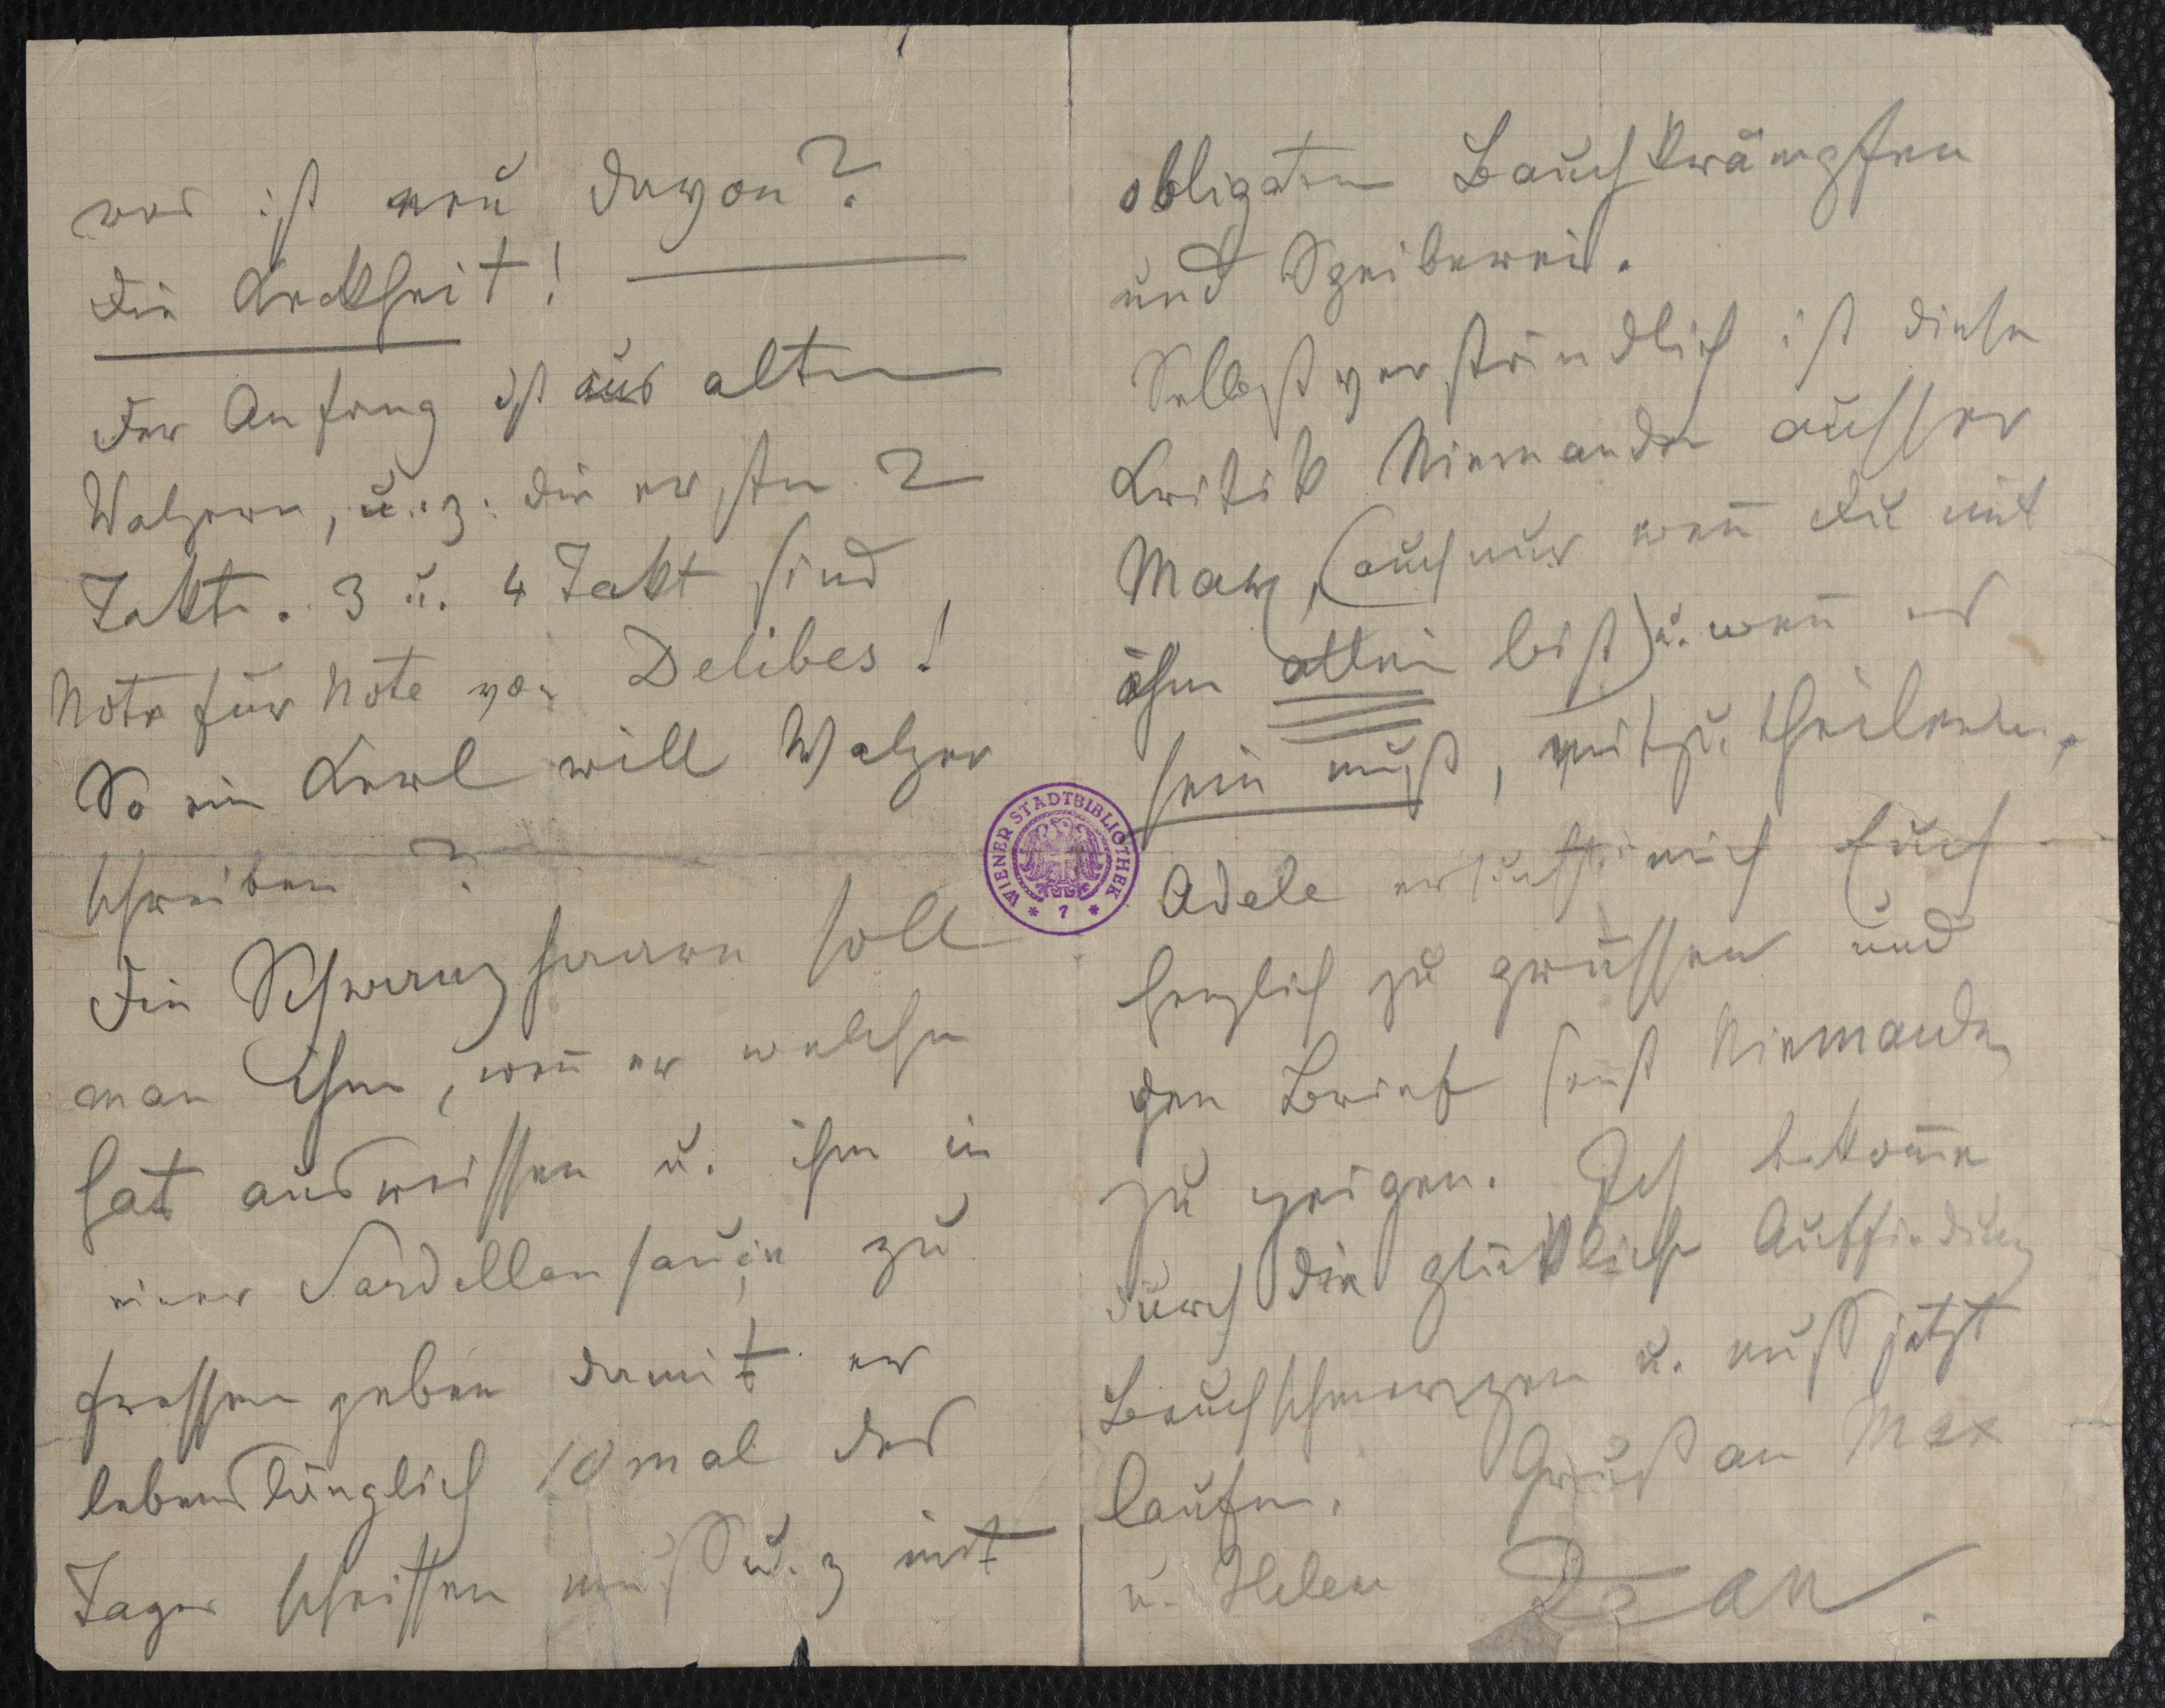 was ist neu davon?
die Keckheit!
Der Anfang ist aus alten
Walzern, u. z. die ersten 2
Takte. 3 u. 4 Takt sind
Note für Note von Delibes!
So ein Kerl will Walzer
schreiben?
Die Schwanzhaare soll
man ihm, wen̄ er welche
hat ausreissen u. ihm in
einer Sardellensauçe zu
fressen geben damit er
lebenslänglich 10 mal des
Tages scheissen muß u. z mit
obligaten Bauchkrämpfen
und Speiberei.
Selbstverständlich ist diese
Kritik Niemanden ausser
Max, (auch nur wen̄ Du mit
ihm allein bist) u. wen̄ es
sein muß, mitzutheilen.
Adele ersucht mich Euch
herzlich zu grüssen und
den Brief sonst Niemanden
zu zeigen. Ich bekom̄e
durch die glückliche Auffindung
Bauchschmerzen u. muß jetzt
laufen. Gruß an Max
u. Helen Jean.
WIENER STADTBIBLIOTHEK
* 7 *